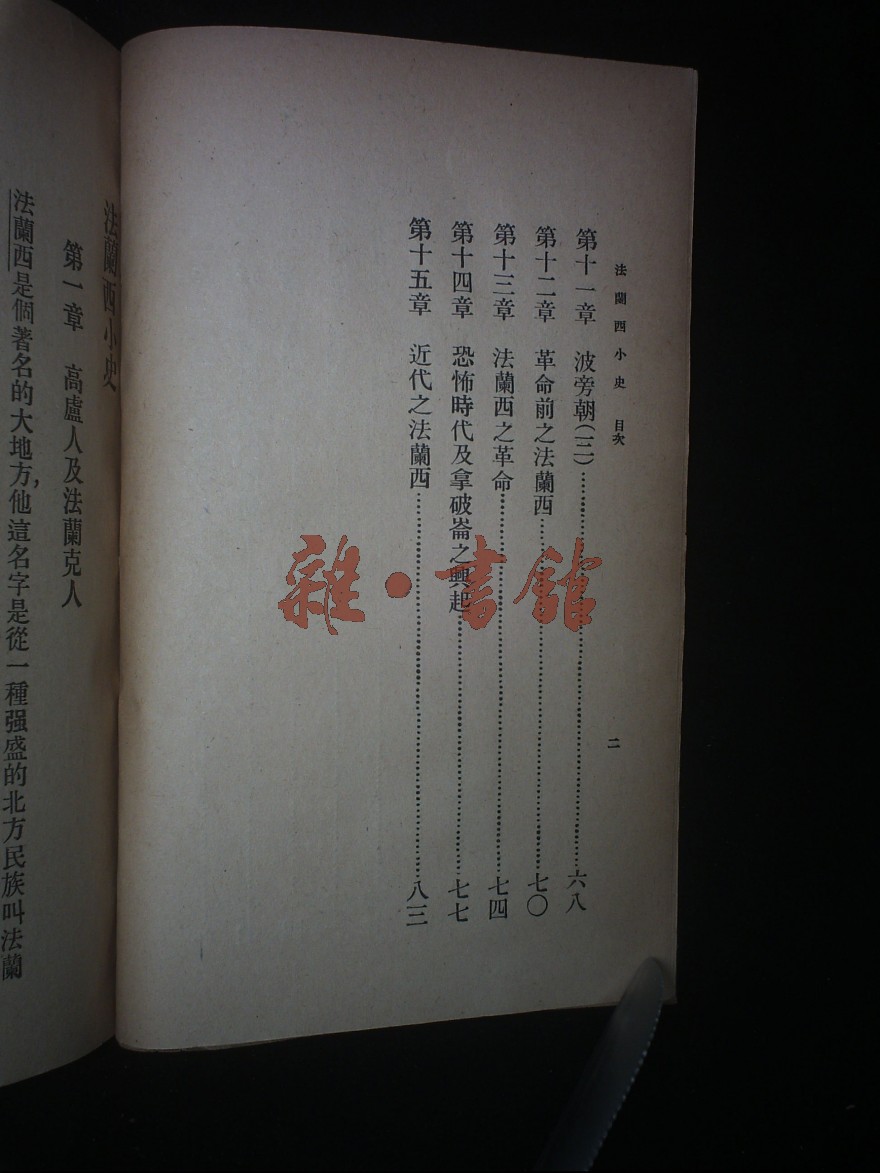 法蘭西小史 目次
二
第十一章 波旁朝(三)……六八
第十二章 革命前之法蘭西……七〇
第十三章 法蘭西之革命……七四
第十四章 恐怖時代及拿破崙之興起……七七
第十五章 近代之法蘭西……八三
雜·書館
法蘭西小史
第一章 高盧人及法蘭克人
法蘭西是個著名的大地方,他這名字是從一種强盛的北方民族叫法蘭